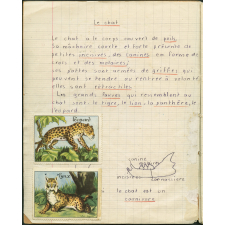 Le chat
Le chat a le corps couvert de poils.
Sa mâchoire courte et forte présente de
petites incisives, des canines en forme de
crocs et des molaires.
Ses pattes sont armées de griffes qui
peuvent se tendre ou rentrer à volonté,
elles sont rétractiles.
Les grands fauves qui ressemblent au
chat sont: le tigre, le lion, la panthère, le
léopard.
Léopard
Tigre
canine
incisives
carnassière
le chat est un
carnivore